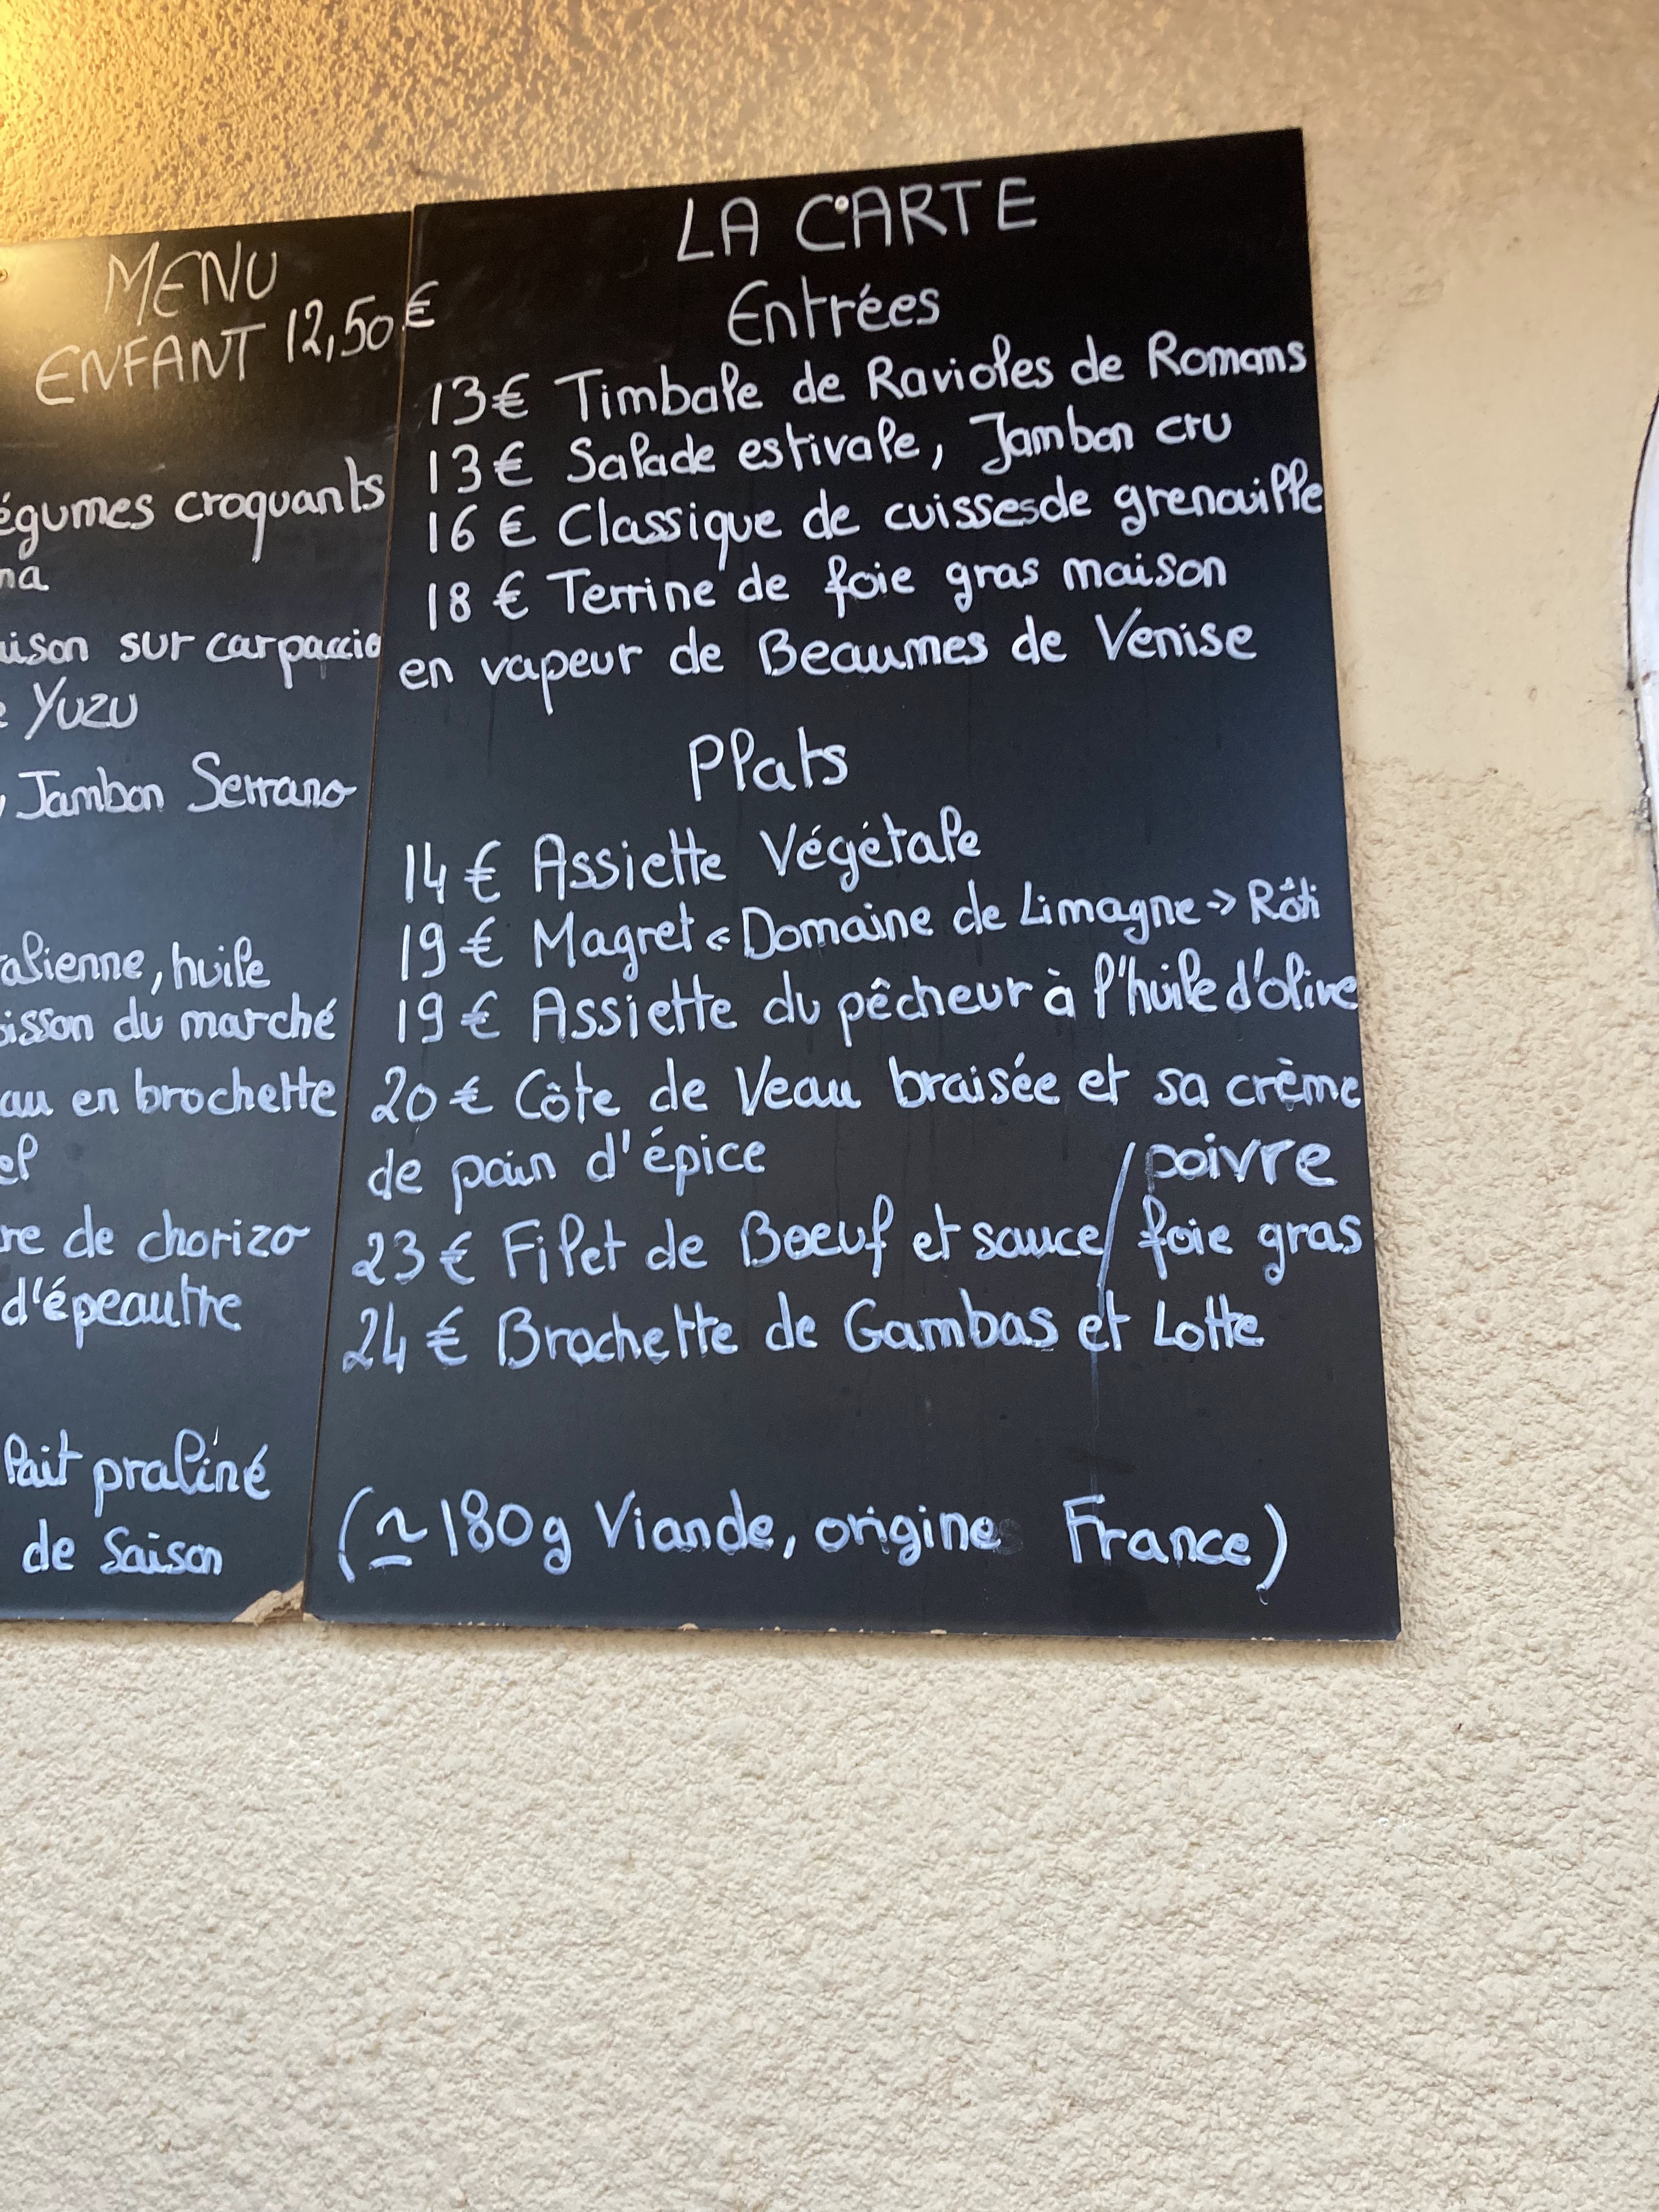 MENU
ENFANT 12,50€
égumes croquants
na
uison sur carpaccio
e Yuzu
, Jambon Serrano
alienne, huile
isson du marché
au en brochette
el
re de chorizo
d'épeautre
lait praliné
de Saison
LA CARTE
Entrées
13€ Timbale de Ravioles de Romans
13€ Salade estivale, Jambon cru
16 € Classique de cuisses de grenouille
18 € Terrine de foie gras maison
en vapeur de Beaumes de Venise
Plats
14 € Assiette Végétale
19 € Magret « Domaine de Limagne » Rôti
19 € Assiette du pêcheur à l'huile d'olive
20 € Côte de Veau braisée et sa crème
de pain d'épice / poivre
23 € Filet de Boeuf et sauce / foie gras
24 € Brochette de Gambas et Lotte
(≃ 180g Viande, origine France)